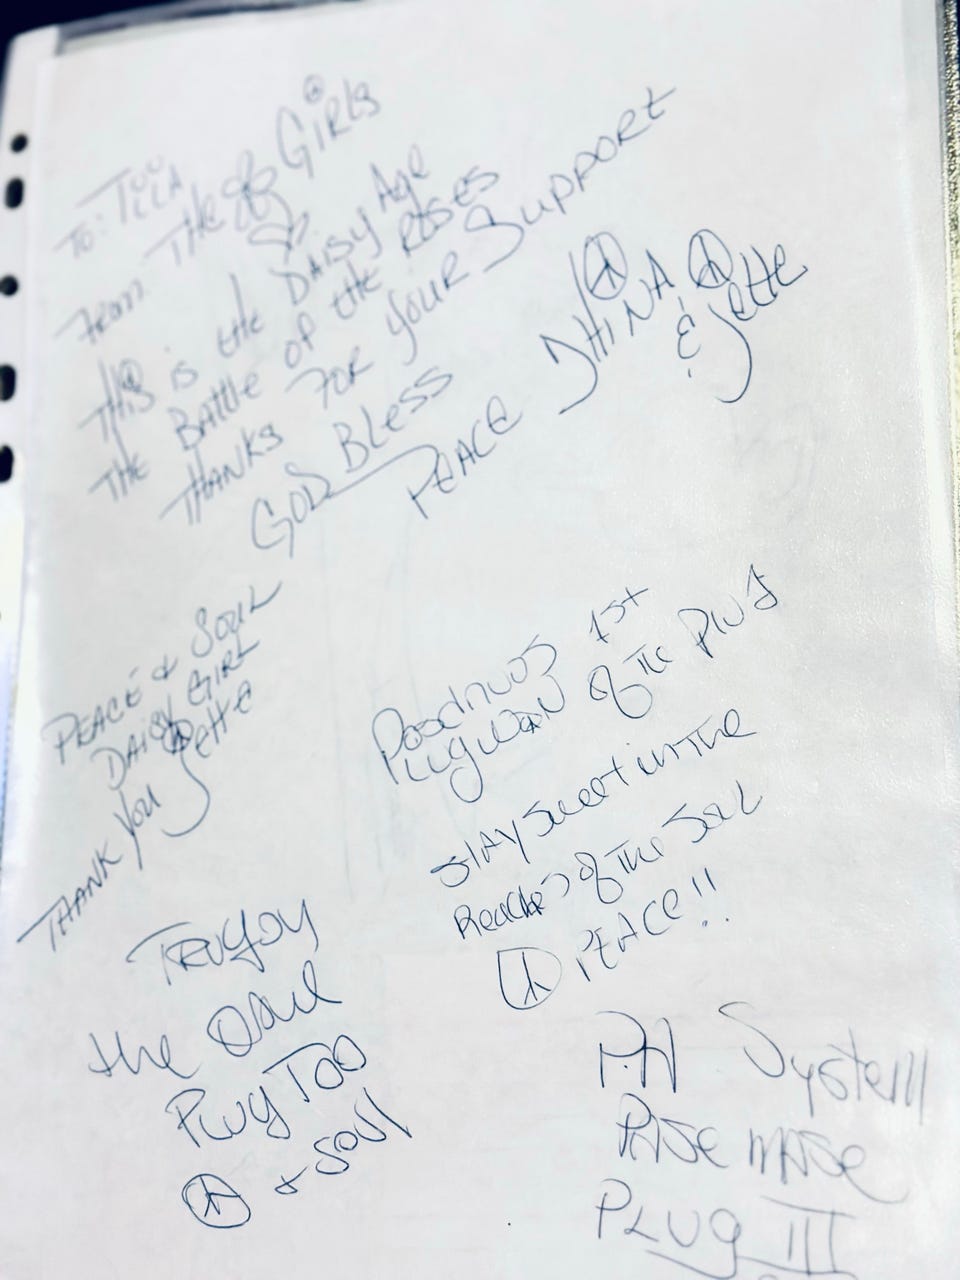 To: TiLLA
From: THE GiRLs
THiS is the DAISY Age
THE BAttLe of the ROSES
THANKS FOR YOUR SUPPORT
GOD BLess
PEACE DHiNA
& Jette
PEACE & SOUL
DAISY GIRL
Jette
THANK YOU
Posdnuos 1st
of the Plug
stay sweet in the
Reaches of the Soul
PEACE!!
TRUGOY
the Dove
PLUG TOO
& SOUL
P.A System
PASE MASE
PLUG III